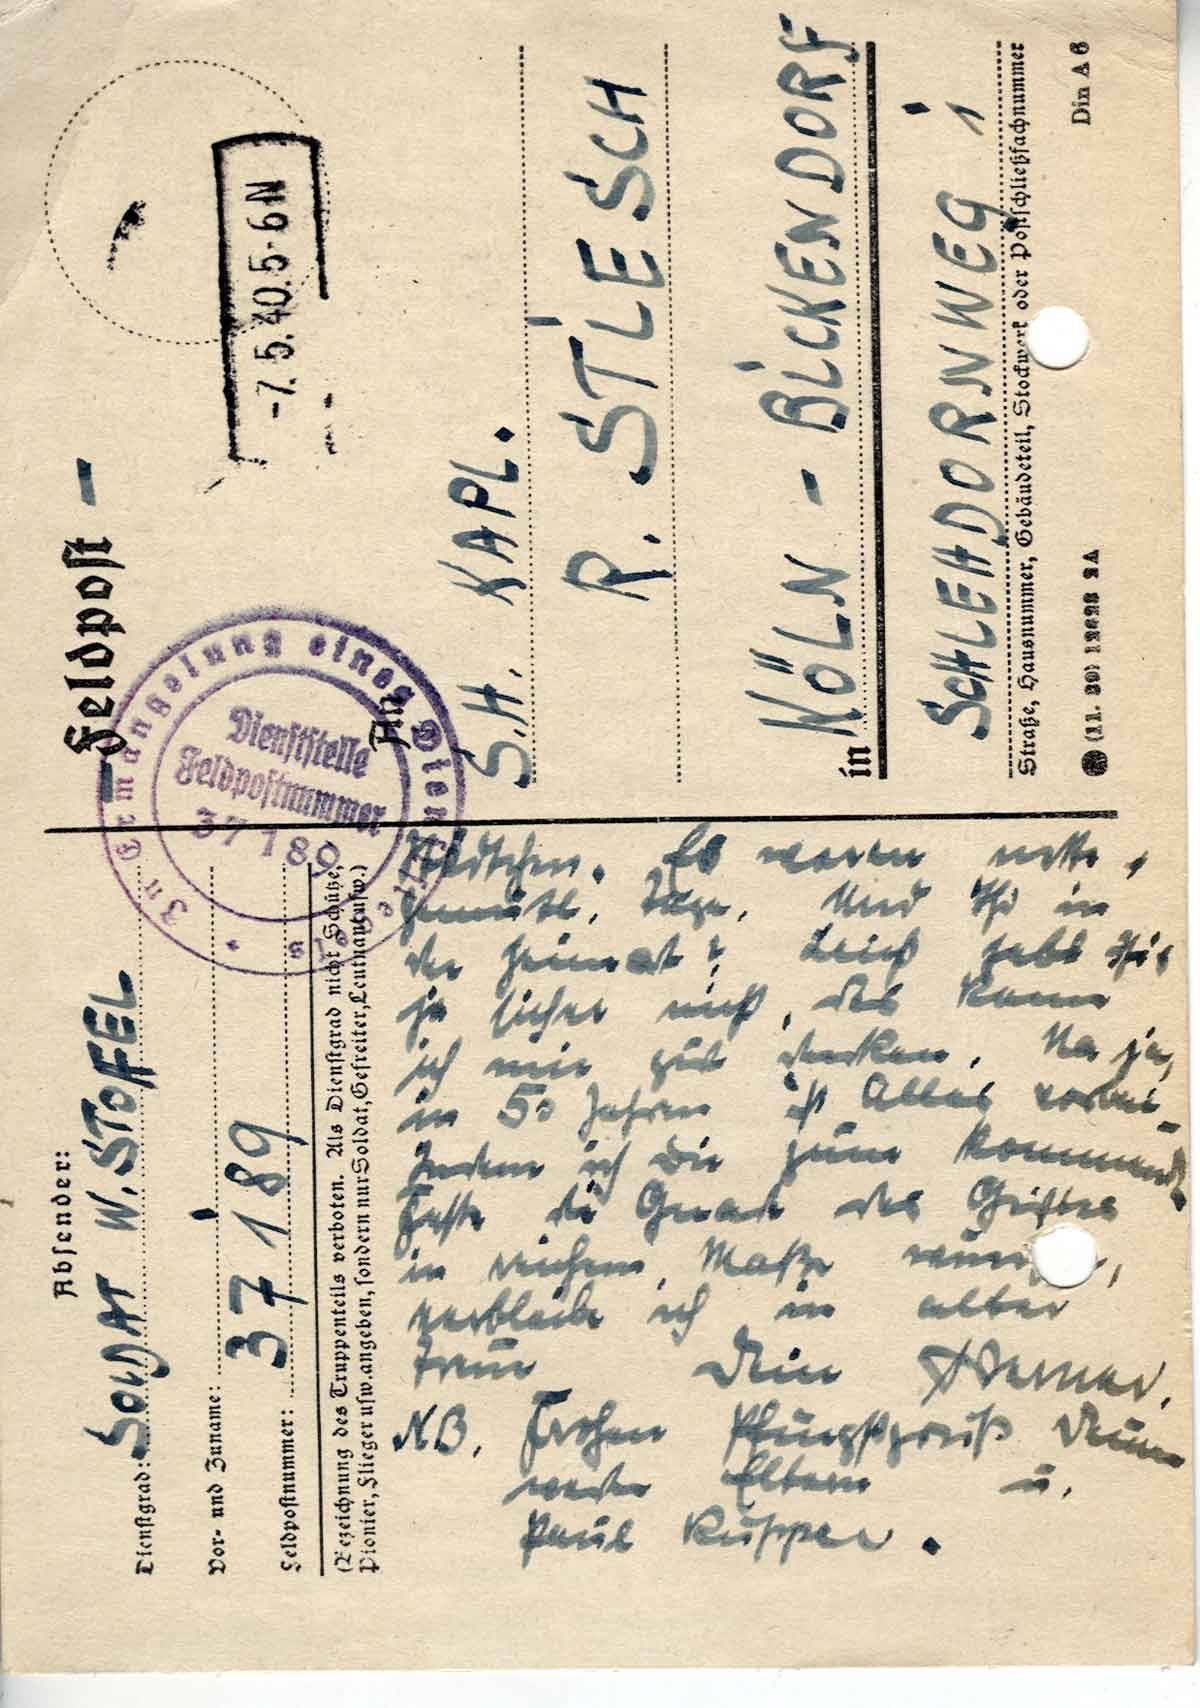 Absender:
Dienstgrad: SOLDAT W. STOFFEL
Vor- und Zuname:
Feldpostnummer: 37189
(Bezeichnung des Truppenteils verboten. Als Dienstgrad nicht Schütze,
Pionier, Flieger usw. angeben, sondern nur Soldat, Gefreiter, Leutnant usw.)
Städtchen. Es waren nette,
gemütl. Tage. Und Ihr in
der Heimat? Leicht habt Ihr's
ja sicher nicht, das kann
ich mir gut denken. Na ja,
in 50 Jahren ist Alles vorbei.
Indem ich Dir zum kommenden
Feste die Gnade des Geistes
in reichem Maße wünsche,
verbleibe ich in alter
Treue Dein Werner.
N.B. Frohen Pfingstgruß Deinen
werten Eltern u.
Paul Küpper.
- Feldpost -
-7.5.40.5-6N
In Ermangelung eines Dienstsiegels
Dienststelle
Feldpostnummer
37189
An
S.H. KAPL.
R. STLESCH
in KÖLN - BICKENDORF
SCHLEHDORNWEG 1
Straße, Hausnummer, Gebäudeteil, Stockwerk oder Postschließfachnummer
(11. 39) 12628 2A
Din A 6